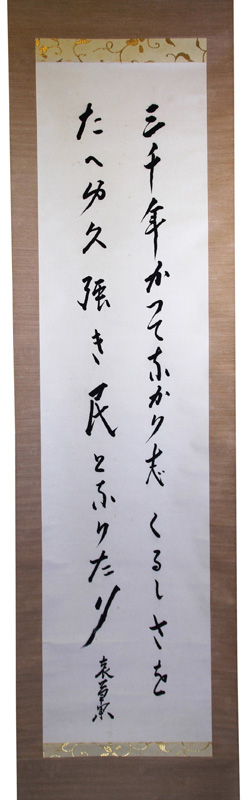 三千年かつてなかりしくるしさを
たへぬく強き民となりたり
哀草果